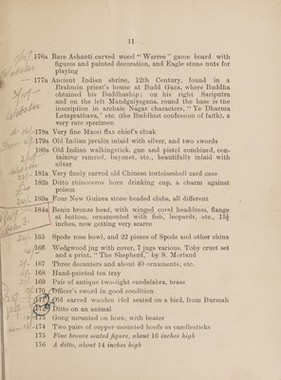 11
176A Rare Ashanti carved wood "Warree" game board with
figures and painted decoration, and Eagle stone nuts for
playing
177A Ancient Indian shrine, 12th Century, found in a
Brahmin priest's house at Budd Gaza, where Buddha
obtained his Buddhaship; on his right Sariputra
and on the left Mandgalyayana, round the base is the
inscription in archaic Nagar characters, "Ye Dharma
Letaprathava," etc. (the Buddhist confession of faith), a
very rare specimen
178A Very fine Maori flax chief's cloak
179A Old Indian javalin inlaid with silver, and two swords
180A Old Indian walkingstick, gun and pistol combined, con-
taining ramrod, bayonet, etc., beautifully inlaid with
silver
181A Very finely carved old Chinese tortoiseshell card case
182A Ditto rhinoceros horn drinking cup, a charm against
poison
183A Four New Guinea stone headed clubs, all different
184A Benin bronze head, with winged coral headdress, flange
at bottom, ornamented with fish, leopards, etc., 15½
inches, now getting very scarce
165 Spode rose bowl, and 22 pieces of Spode and other china
166 Wedgwood jug with cover, 7 jugs various, Toby cruet set
and a print, "The Shepherd," by S. Morland
167 Three decanters and about 40 ornaments, etc.
168 Hand-painted tea tray
169 Pair of antique two-light candelabra, brass
170 Officer's sword in good condition
171 Old carved wooden idol seated on a bird, from Burmah
172 Ditto on an animal
173 Gong mounted on horn, with beater
174 Two pairs of copper-mounted hoofs as candlesticks
175 Fine bronze seated figure, about 16 inches high
176 A ditto, about 14 inches high